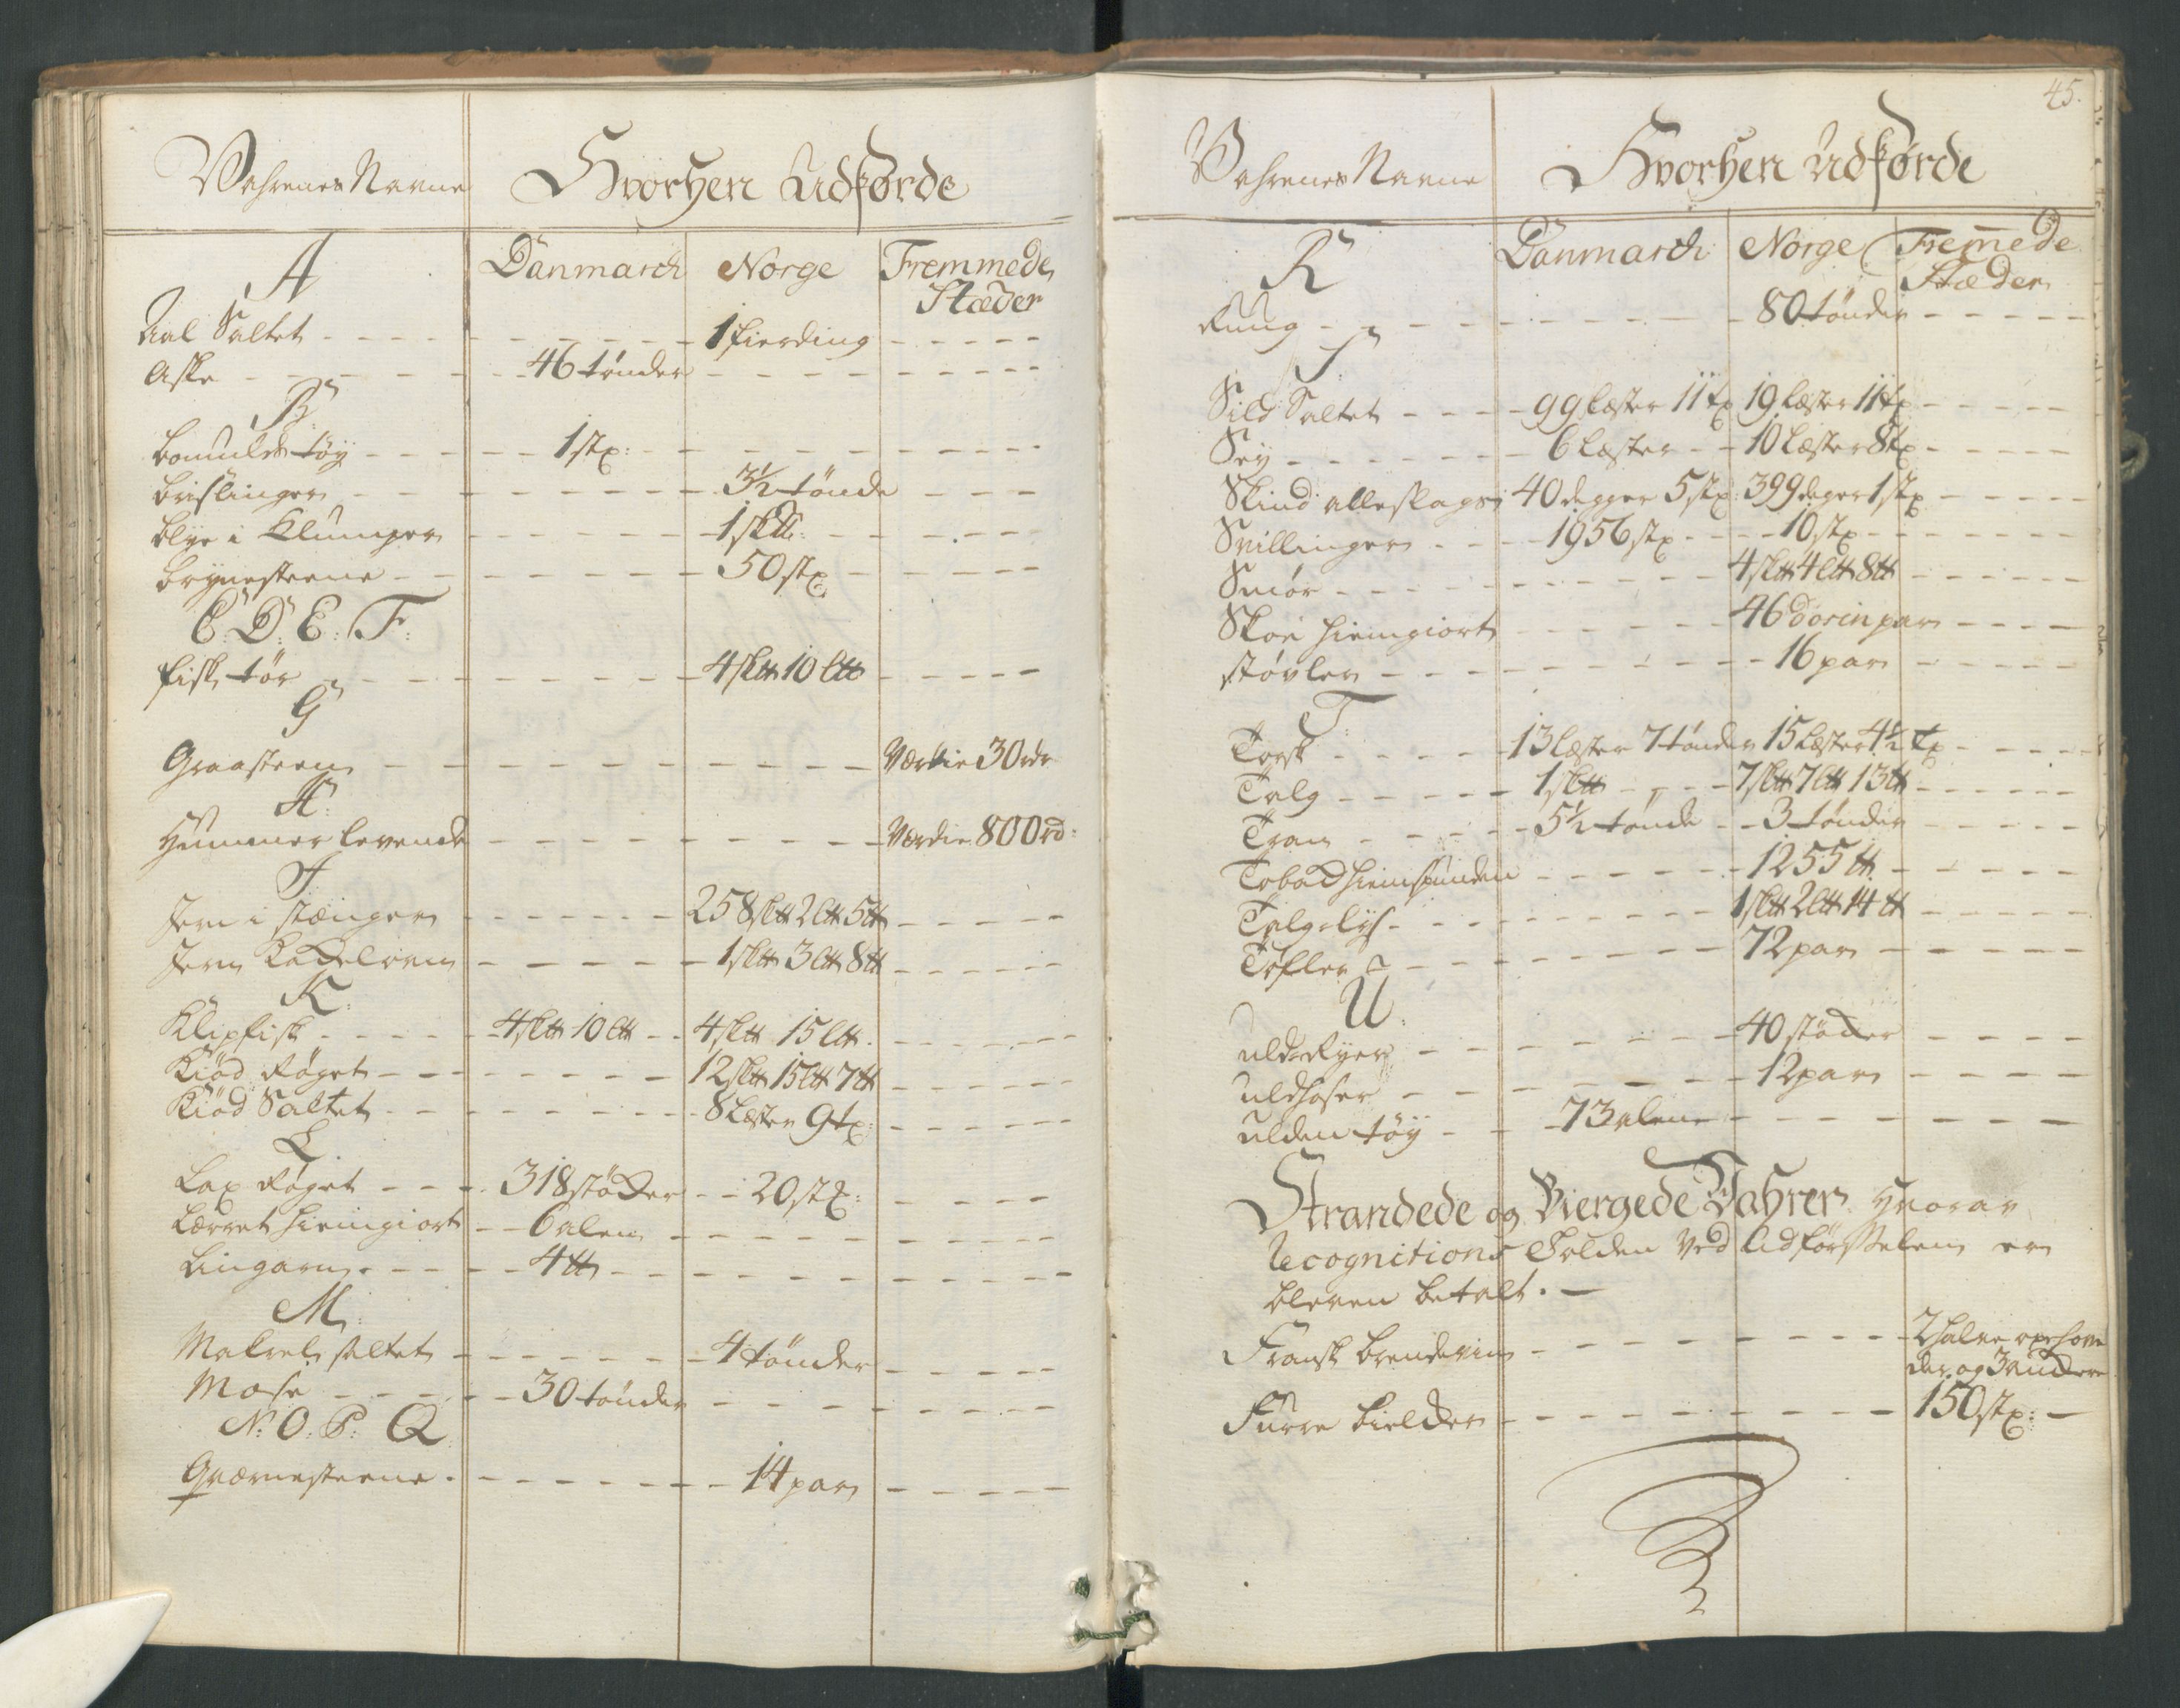 Vahrenes Navne Hvorhen Udførde
A Danmarch Norge Fremmede
Stæder
Aal Saltet - - - - 1 fierding - - - -
Aske - - - - 46 tønder - - - -
B:
bomulds tøy - - - - 1 stx: - - - -
brislinger - - - - 3½ tønde - - -
blye i Klumper - - - - 1 sk℔: - - - -
brynesteene - - - - 50 stx - - - -
C: D: E: F:
fisk tør - - - - 4 sk℔ 10 l℔ - - - -
G
Graasteen - - - - Værdie 30 rdr
H:
Hummer levende - - - - Værdie 800 rd:
J:
Jern i stænger - - - - 258 sk℔ 2 l℔ 5 ℔ - - - -
Jern Kackelovn - - - - 1 sk℔ 3 l℔ 8 ℔ - - - -
K:
Klipfisk - - - - 4 sk℔ 10 l℔ - - 4 sk℔ 15 l℔. - - - -
Kiød Røget - - - - 12 sk℔ 15 l℔ 7 ℔ - - - -
Kiød Saltet - - - - 8 Læster 9 tx: - - - -
L
Lax Røget - - - 318 støcker - - 20 stx: - - - -
Lærret hiemgiort - - 6 alen - - - -
Lingarn. - - - - 4 ℔ - - - -
M:
Makrel saltet - - - - 4 tønder - - - -
Mose - - - - 30 tønder - - - -
N: O: P: Q:
Qværnesteene. - - - - 14 par - - - -
45.
Vahrenes Navne Hvorhen Udførde
R Danmarch Norge Fremede
Stæder
Ruug - - - - 80 tønder - - - -
S:
Sild Saltet - - - - 99 læster 11 tx 19 læster 11 tx - - - -
Sey - - - - 6 læster - - 10 Læster 8 tx - - - -
Skind alleslags 40 degger 5 stx: 399 deger 1 stx - - - -
Spillinger - - - - 1956 stx - - - - 10 stx - - - -
Smør - - - - 4 sk℔ 4 l℔ 8 ℔ - - - -
Skoe hiemgiort - - - - 46 dosin par - - - -
støvler - - - - 16 par - - - -
T:
Torsk - - - - 13 læster 7 tønder 15 læster 4½ tx - - - -
Talg - - - - 1 sk℔ - - - 7 sk℔ 7 l℔ 13 ℔ - - - -
Tran - - - - 5½ tønde - - 3 tønder - - - -
Toback hiemspunden - - - - 1255 ℔ - - - -
Talg-lys - - - - 1 sk℔ 2 l℔ 14 ℔ - - - -
Tøfler - - - - 72 par - - - -
U:
uld-Ryer - - - - 40 støcker - - - -
uldhoser - - - - 12 par - - - -
ulden tøy - - - 73 alene - - - -
Strandede og Biergede Vahrer hvorav
Recognitions Tolden ved Udførselen er
bleven betalt. -
Fransk brendeviin - - - - 2 halve oxehove
der og 3 anckere
Furre bielcker - - - - 150 stx: -